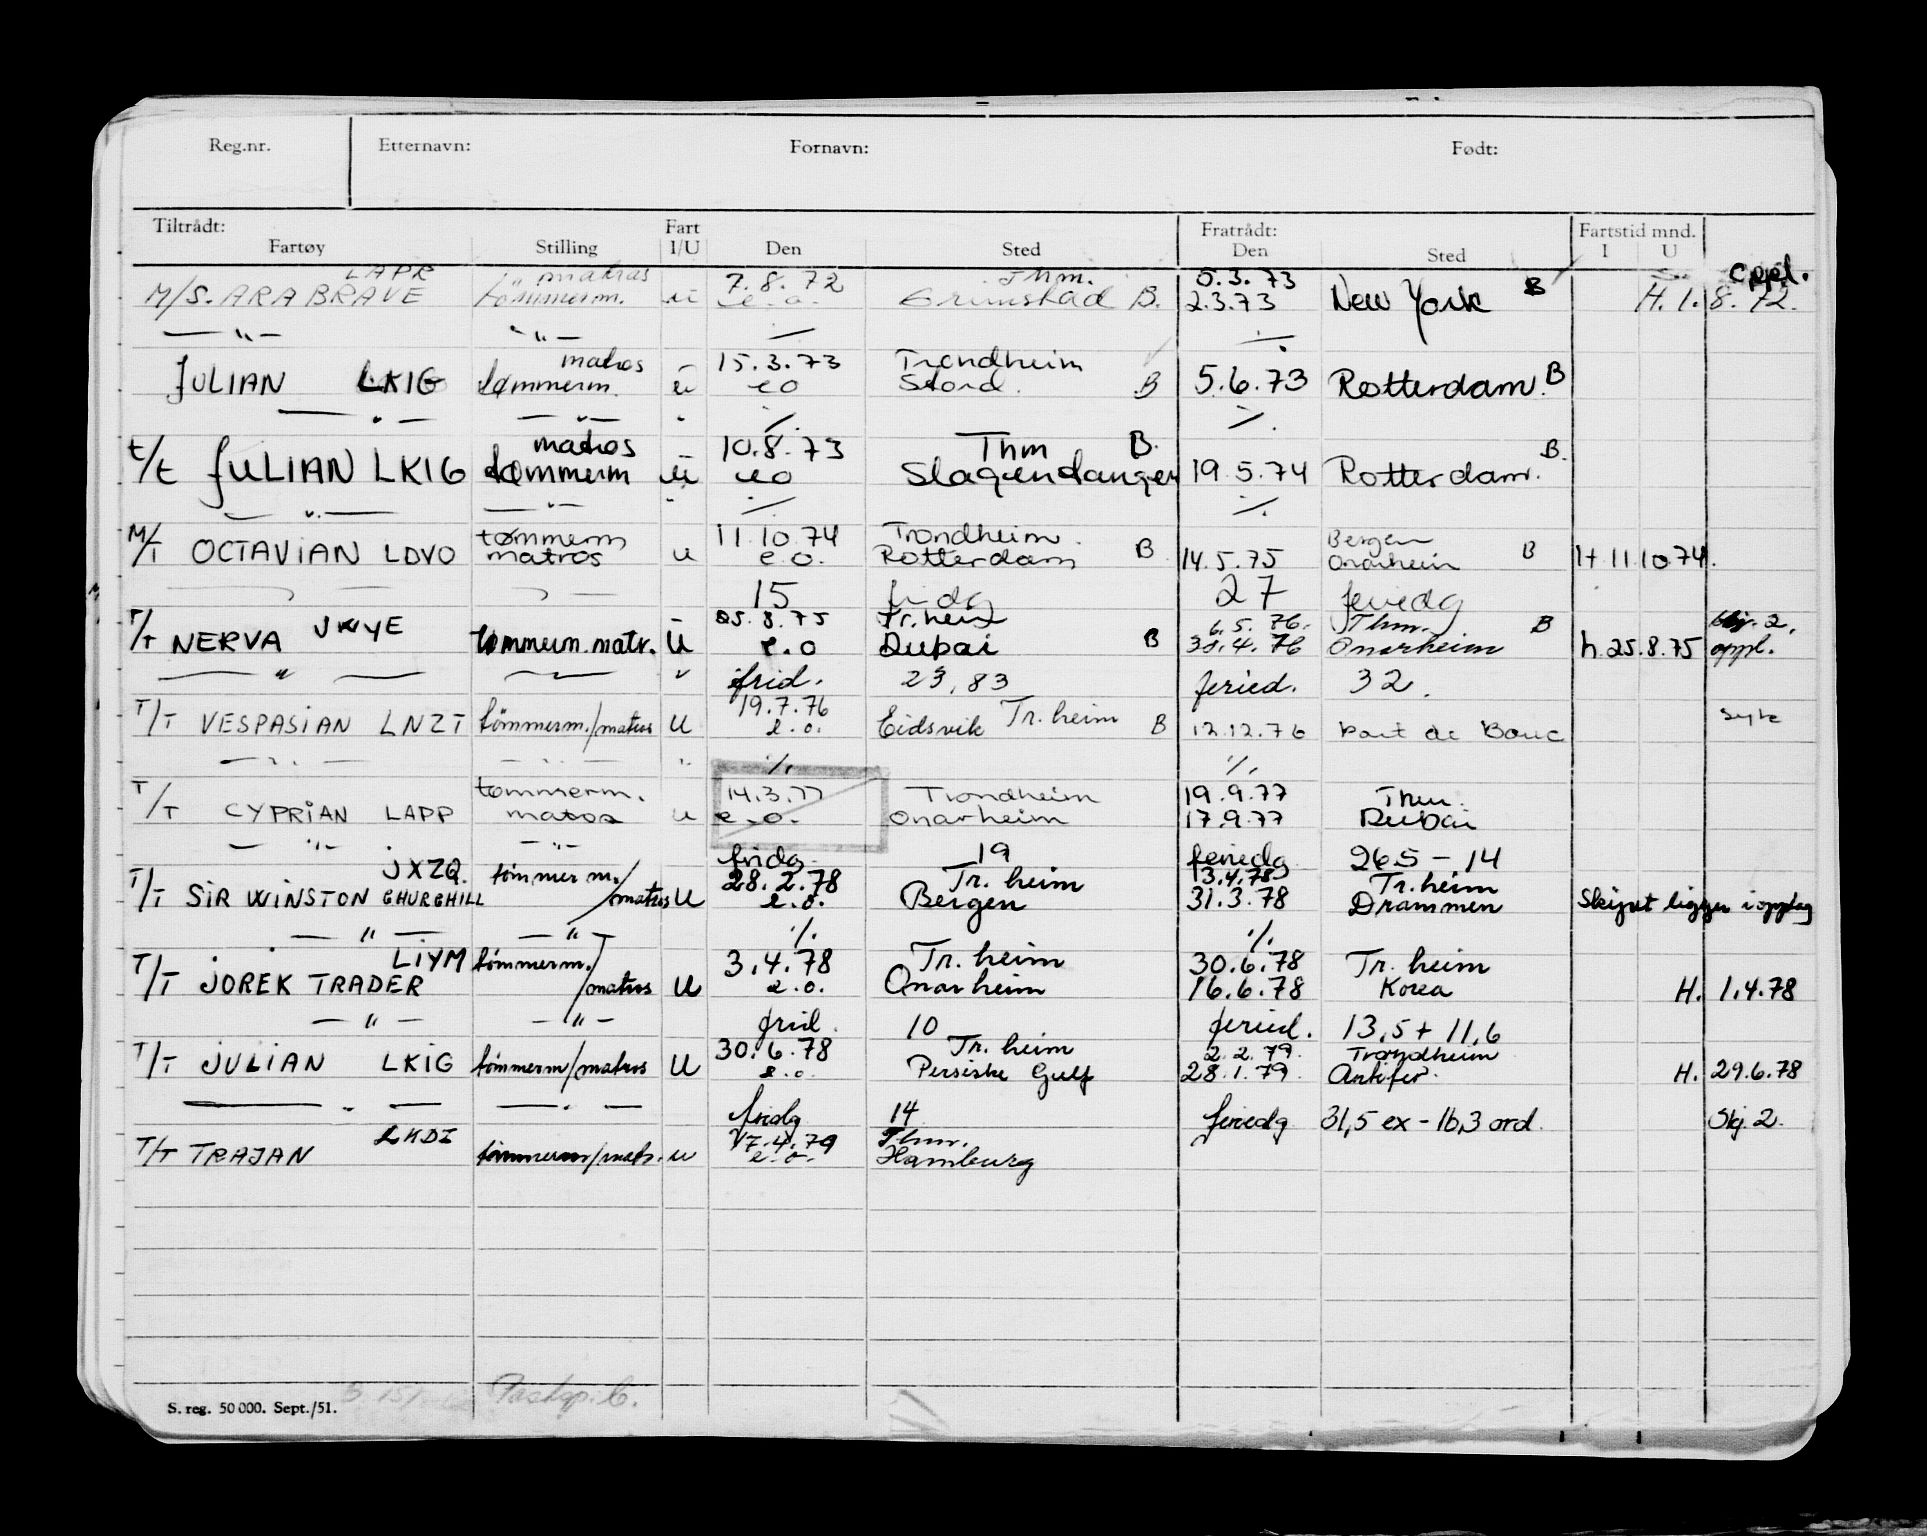 Reg.nr. Etternavn: Fornavn: Født:
Tiltrådt: Fart Fratrådt: Fartstid mnd.
Fartøy Stilling I/U Den Sted Den Sted I U
LAPR matros 7.8.72 Thm. 5.3.73 oppl.
M/S. ARABRAVE tømmerm. u e.o. Grimstad B. 2.3.73 New York B H. 1. 8. 72.
— " — " — ./. ./.
matros 15.3.73 Trondheim
JULIAN LKIG tømmerm. u eo Stord. B 5.6.73 Rotterdam. B
— " — — " — " ./. ./.
matros 10.8.73 Thm B. B.
t/t JULIAN LKIG tømmerm u eo Slagentangen 19.5.74 Rotterdam.
— " — — " — " ./. ./.
tømmerm 11.10.74 Trondheim. Bergen
M/T OCTAVIAN LDVO matros u e.o. Rotterdam B 14.5.75 Onarheim B H 11.10.74.
15 fridg 27 feriedg
25.8.75 Tr.heim 6.5.76. Thm. B 2.
T/T NERVA JWYE tømmerm. matr. U e.o Dubai B 30.4.76 Onarheim h. 25.8.75 oppl.
— " — — " frid. 23,83 feried. 32.
19.7.76 Tr.heim syk
T/T VESPASIAN LNZT tømmerm./matros U e.o. Eidsvik B 12.12.76 Port de Bouc
— " — — " — " ./. ./.
tømmerm. 14.3.77 Trondheim 19.9.77 Thm.
T/T CYPRIAN LAPP matros u e.o. Onarheim 17.9.77 Dubai
— " — — " — fridg 19 feriedg 26.5 - 14
JXZQ. tømmerm. 28.2.78 Tr. heim 13.4.78 Tr.heim
T/T SIR WINSTON CHURCHILL /matros U e.o. Bergen 31.3.78 Drammen Skipet ligger i opplag
— " — — " — ./. ./.
LIYM tømmerm. 3.4.78 Tr. heim 30.6.78 Tr. heim
T/T JOREK TRADER /matros U e.o. Onarheim 16.6.78 Korea H. 1.4.78
— " — — " — frid. 10 feried. 13,5 + 11,6
30.6.78 Tr. heim 2.2.79. Trondheim
T/T JULIAN LKIG tømmerm/matros U e.o. Persiske Gulf 28.1.79. Antifer. H. 29.6.78
— " — — " — fridg 14 feriedg 31,5 ex - 16,3 ord. Skj 2.
LKDI 17.4.79 Thm.
T/T TRAJAN tømmerm/matr. u e.o. Hamburg
S. reg. 50 000. Sept./51.